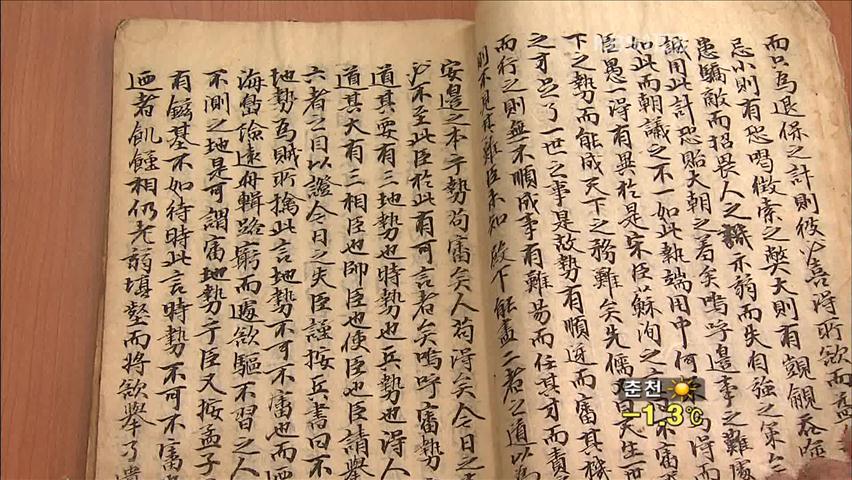 而只為退保之計則彼必喜得所欲而益
忌小則有恐喝徵索之弊大則有覬覦吞噬
患驕敵而招畏人之譏示弱而失自強之策今
誠用此計恐貽大朝之羞矣嗚呼邊事之難處
如此而朝議之不一如此執端用中何
臣愚一得有異於是宋臣蘇洵之 不審
下之勢而能成天下之務難矣先儒 天生一世
之才足了一世之事是故勢有順逆而審其機
而行之則無不順成事有難易而任其才而責
則不見其難臣未知 殿下能盡二者之道以為
安邊之本乎勢苟審矣人苟得矣今日之
必不至此臣於此有可言者矣嗚呼審勢
道其要有三地勢也時勢也兵勢也得人
道其大有三相臣也帥臣也使臣也臣請舉
六者之目以證今日之失臣謹按兵書曰不
地勢為賊所擒此言地勢不可不審也而
海島險遠舟輯路窮而遽欲驅不習之人
不測之地是可謂審地勢乎臣又按孟子
有鎡基不如待時此言時勢不可不審
迺者飢饉相仍老弱填壑而將欲舉
춘천
-1.3℃